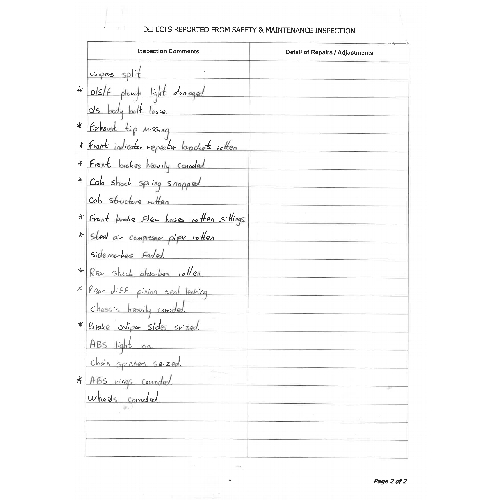 DEFECTS REPORTED FROM SAFETY & MAINTENANCE INSPECTION
Inspection Comments
Detail of Repairs / Adjustments
wipers split
* O/S/F plump light damaged
O/S body bolt loose
* Exhaust tip missing
* Front indicator repeater brackets rotten
* Front brakes heavily corroded
* Cab shock spring snapped
Cab structure rotten
* Front brake flexi hoses rotten fittings
* Steel air compressor pipe rotten
Sidemarkers faded
* Rear shock absorbers rotten
* Rear diff pinion seal leaking
Chassis heavily corroded
* Brake caliper slides seized
ABS light on
Chain spinners seized
* ABS rings corroded
Wheels corroded
Page 2 of 2